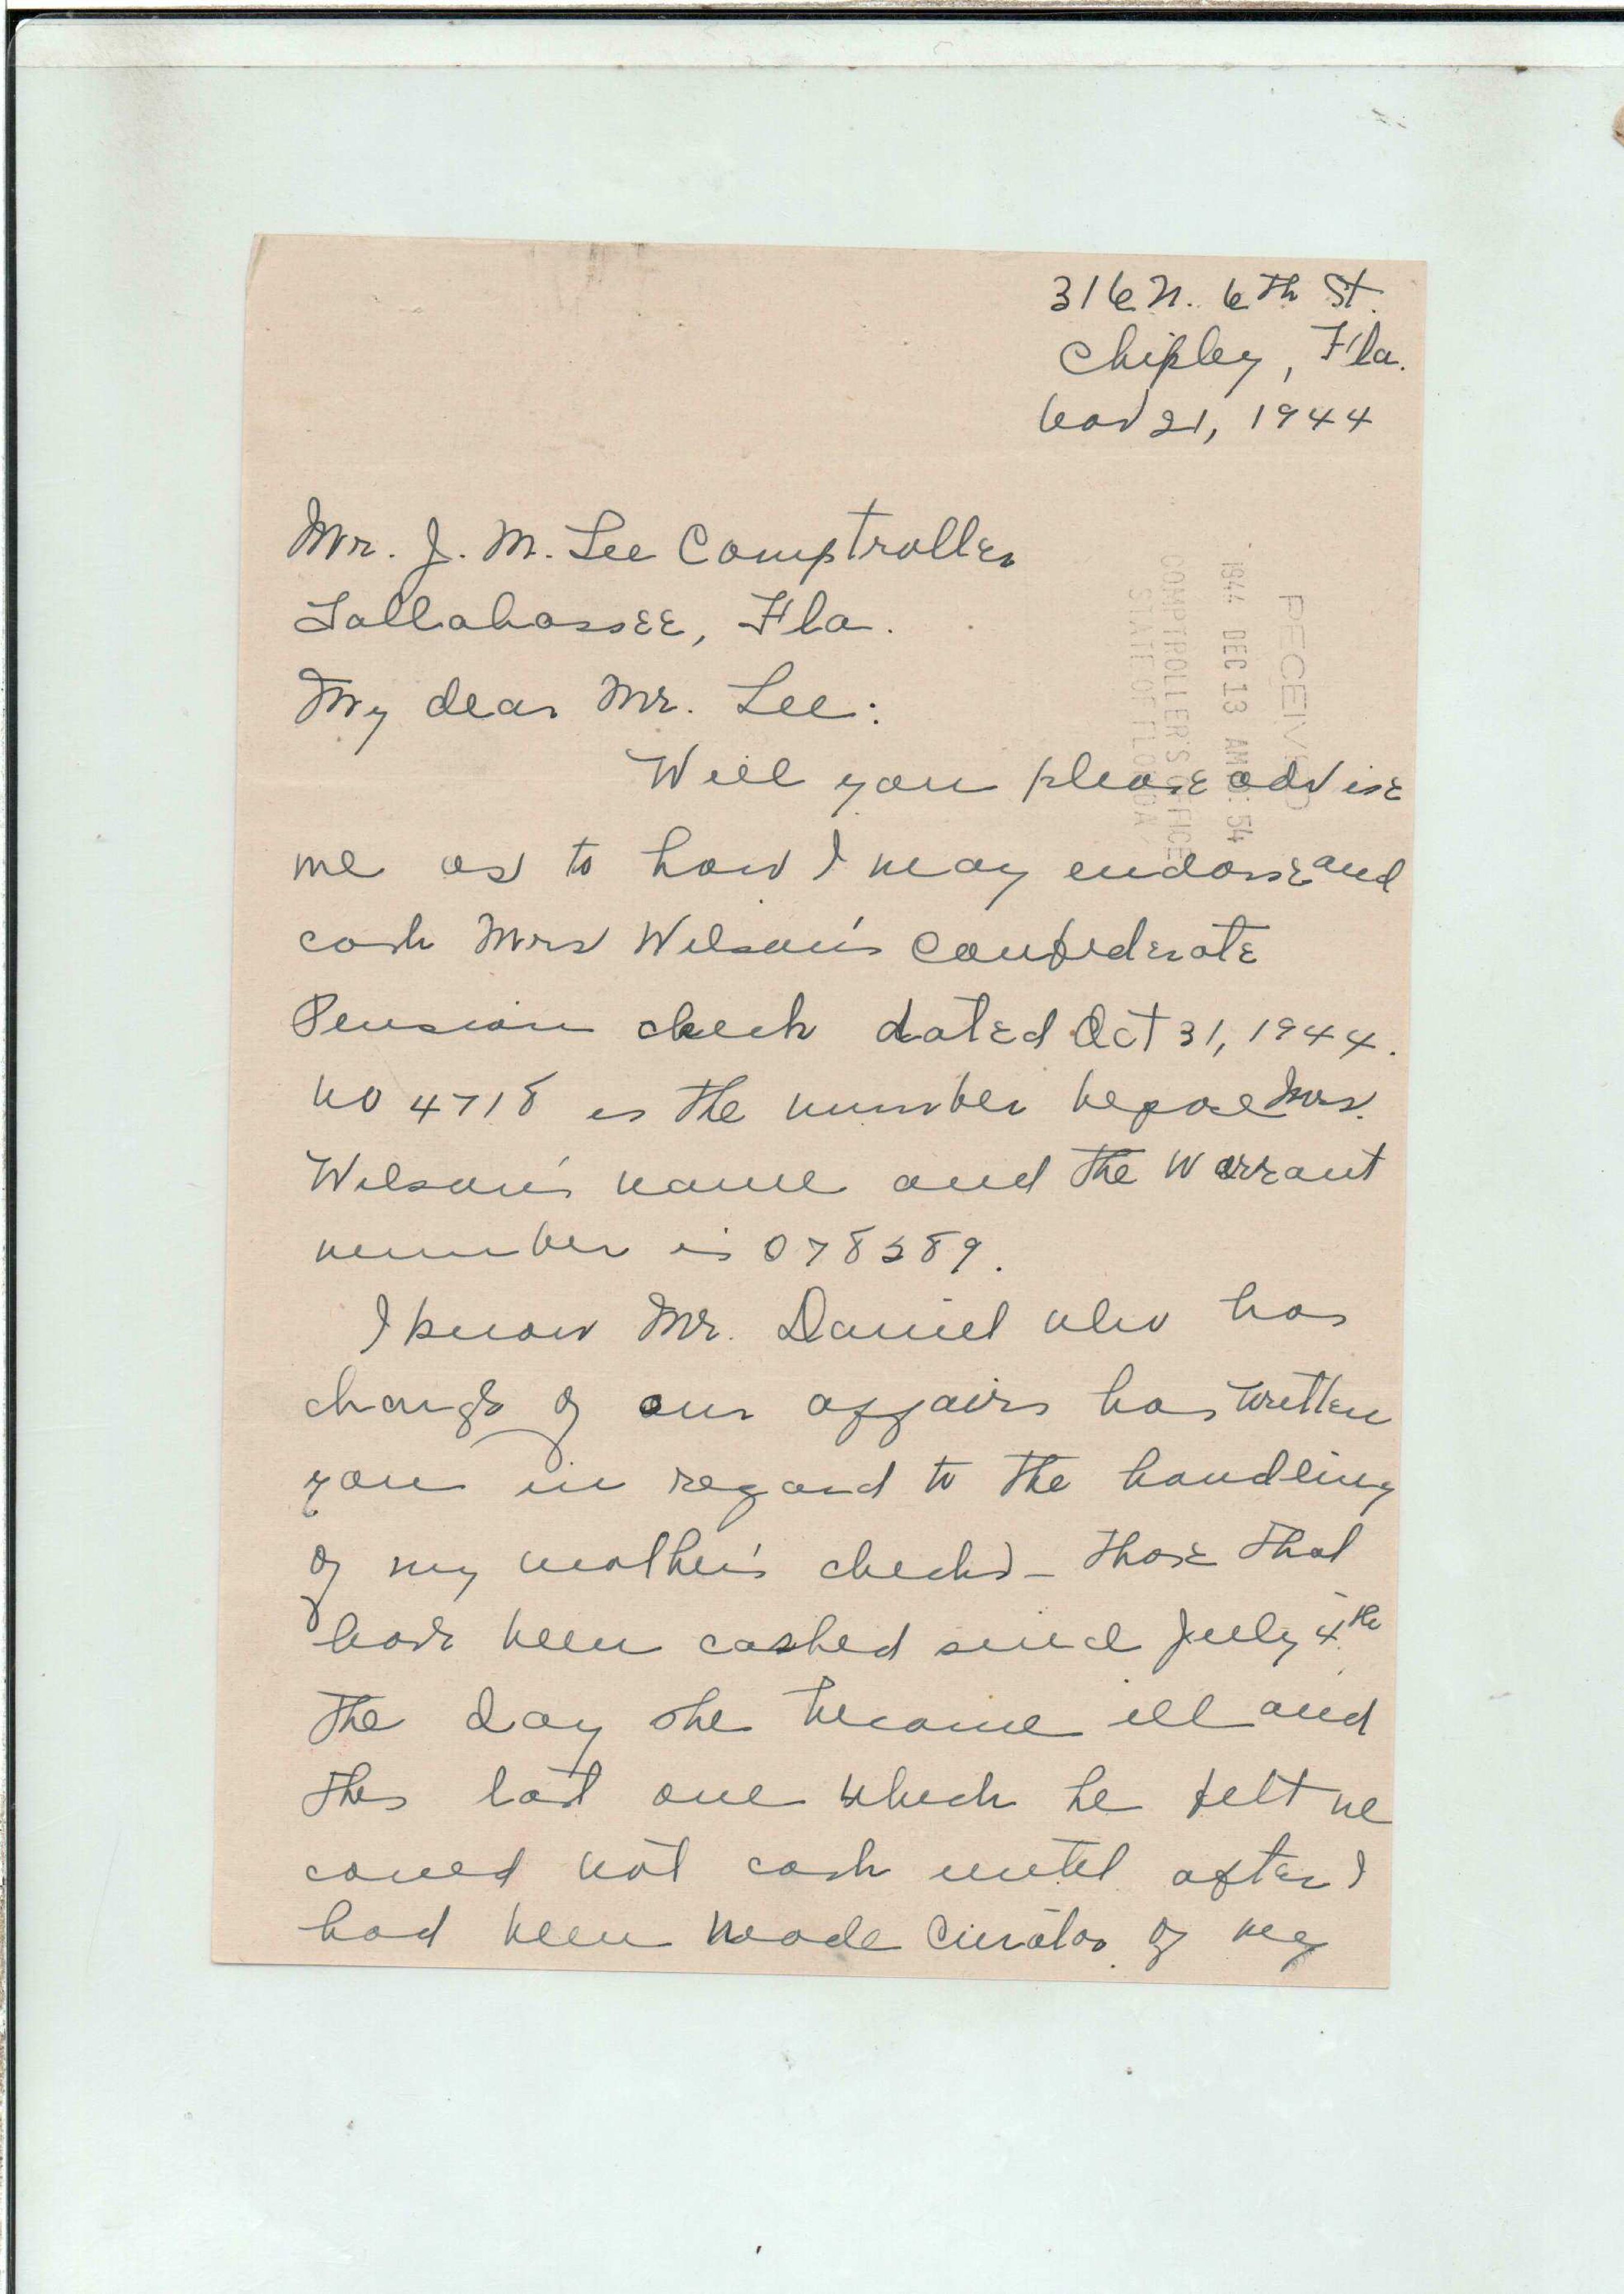 316 N. 6th St.
Chipley, Fla.
Nov 21, 1944
Mr. J. M. Lee Comptroller
Tallahassee, Fla.
My dear Mr. Lee:
Will you please advise
me as to how I may endorse and
cash Mrs Wilson's Confederate
Pension check dated Oct 31, 1944.
No 4718 is the number before Mrs.
Wilson's name and the Warrant
number is 078589.
I know Mr. Daniel who has
charge of our affairs has written
you in regard to the handling
of my mother's checks - those that
have been cashed since July 4th
the day she became ill and
this last one which he felt we
could not cash until after I
had been made Curator of my
RECEIVED
1944 DEC 13 AM :54
COMPTROLLER'S OFFICE
STATE OF FLORIDA